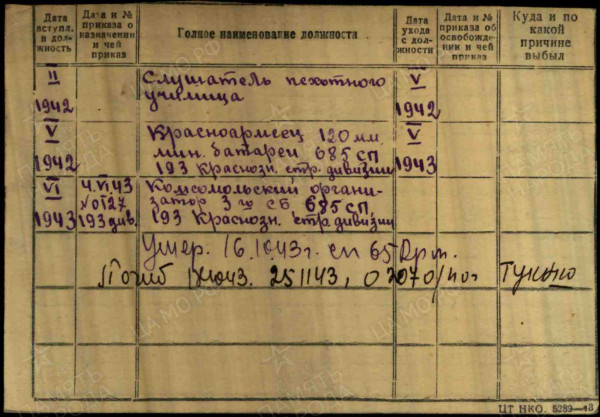 Дата вступл. в должность
Дата и № приказа о назначении и чей приказ
Полное наименование должности
Дата ухода с должности
Дата и № приказа об освобождении и чей приказ
Куда и по какой причине выбыл
II
1942
Слушатель пехотного
училища
V
1942
V
1942
Красноармеец 120 мм.
мин. батареи 685 СП
193 Краснозн. стр. дивизии
V
1943
VI
1943
4.VI.43
193 див.
Комсомольский органи-
затор 3 го СБ 685 СП,
193 Краснозн. стр. дивизии
Умер. 16.10.43г. 65 Арм.
Погиб
ЦТ НКО. 5289—43